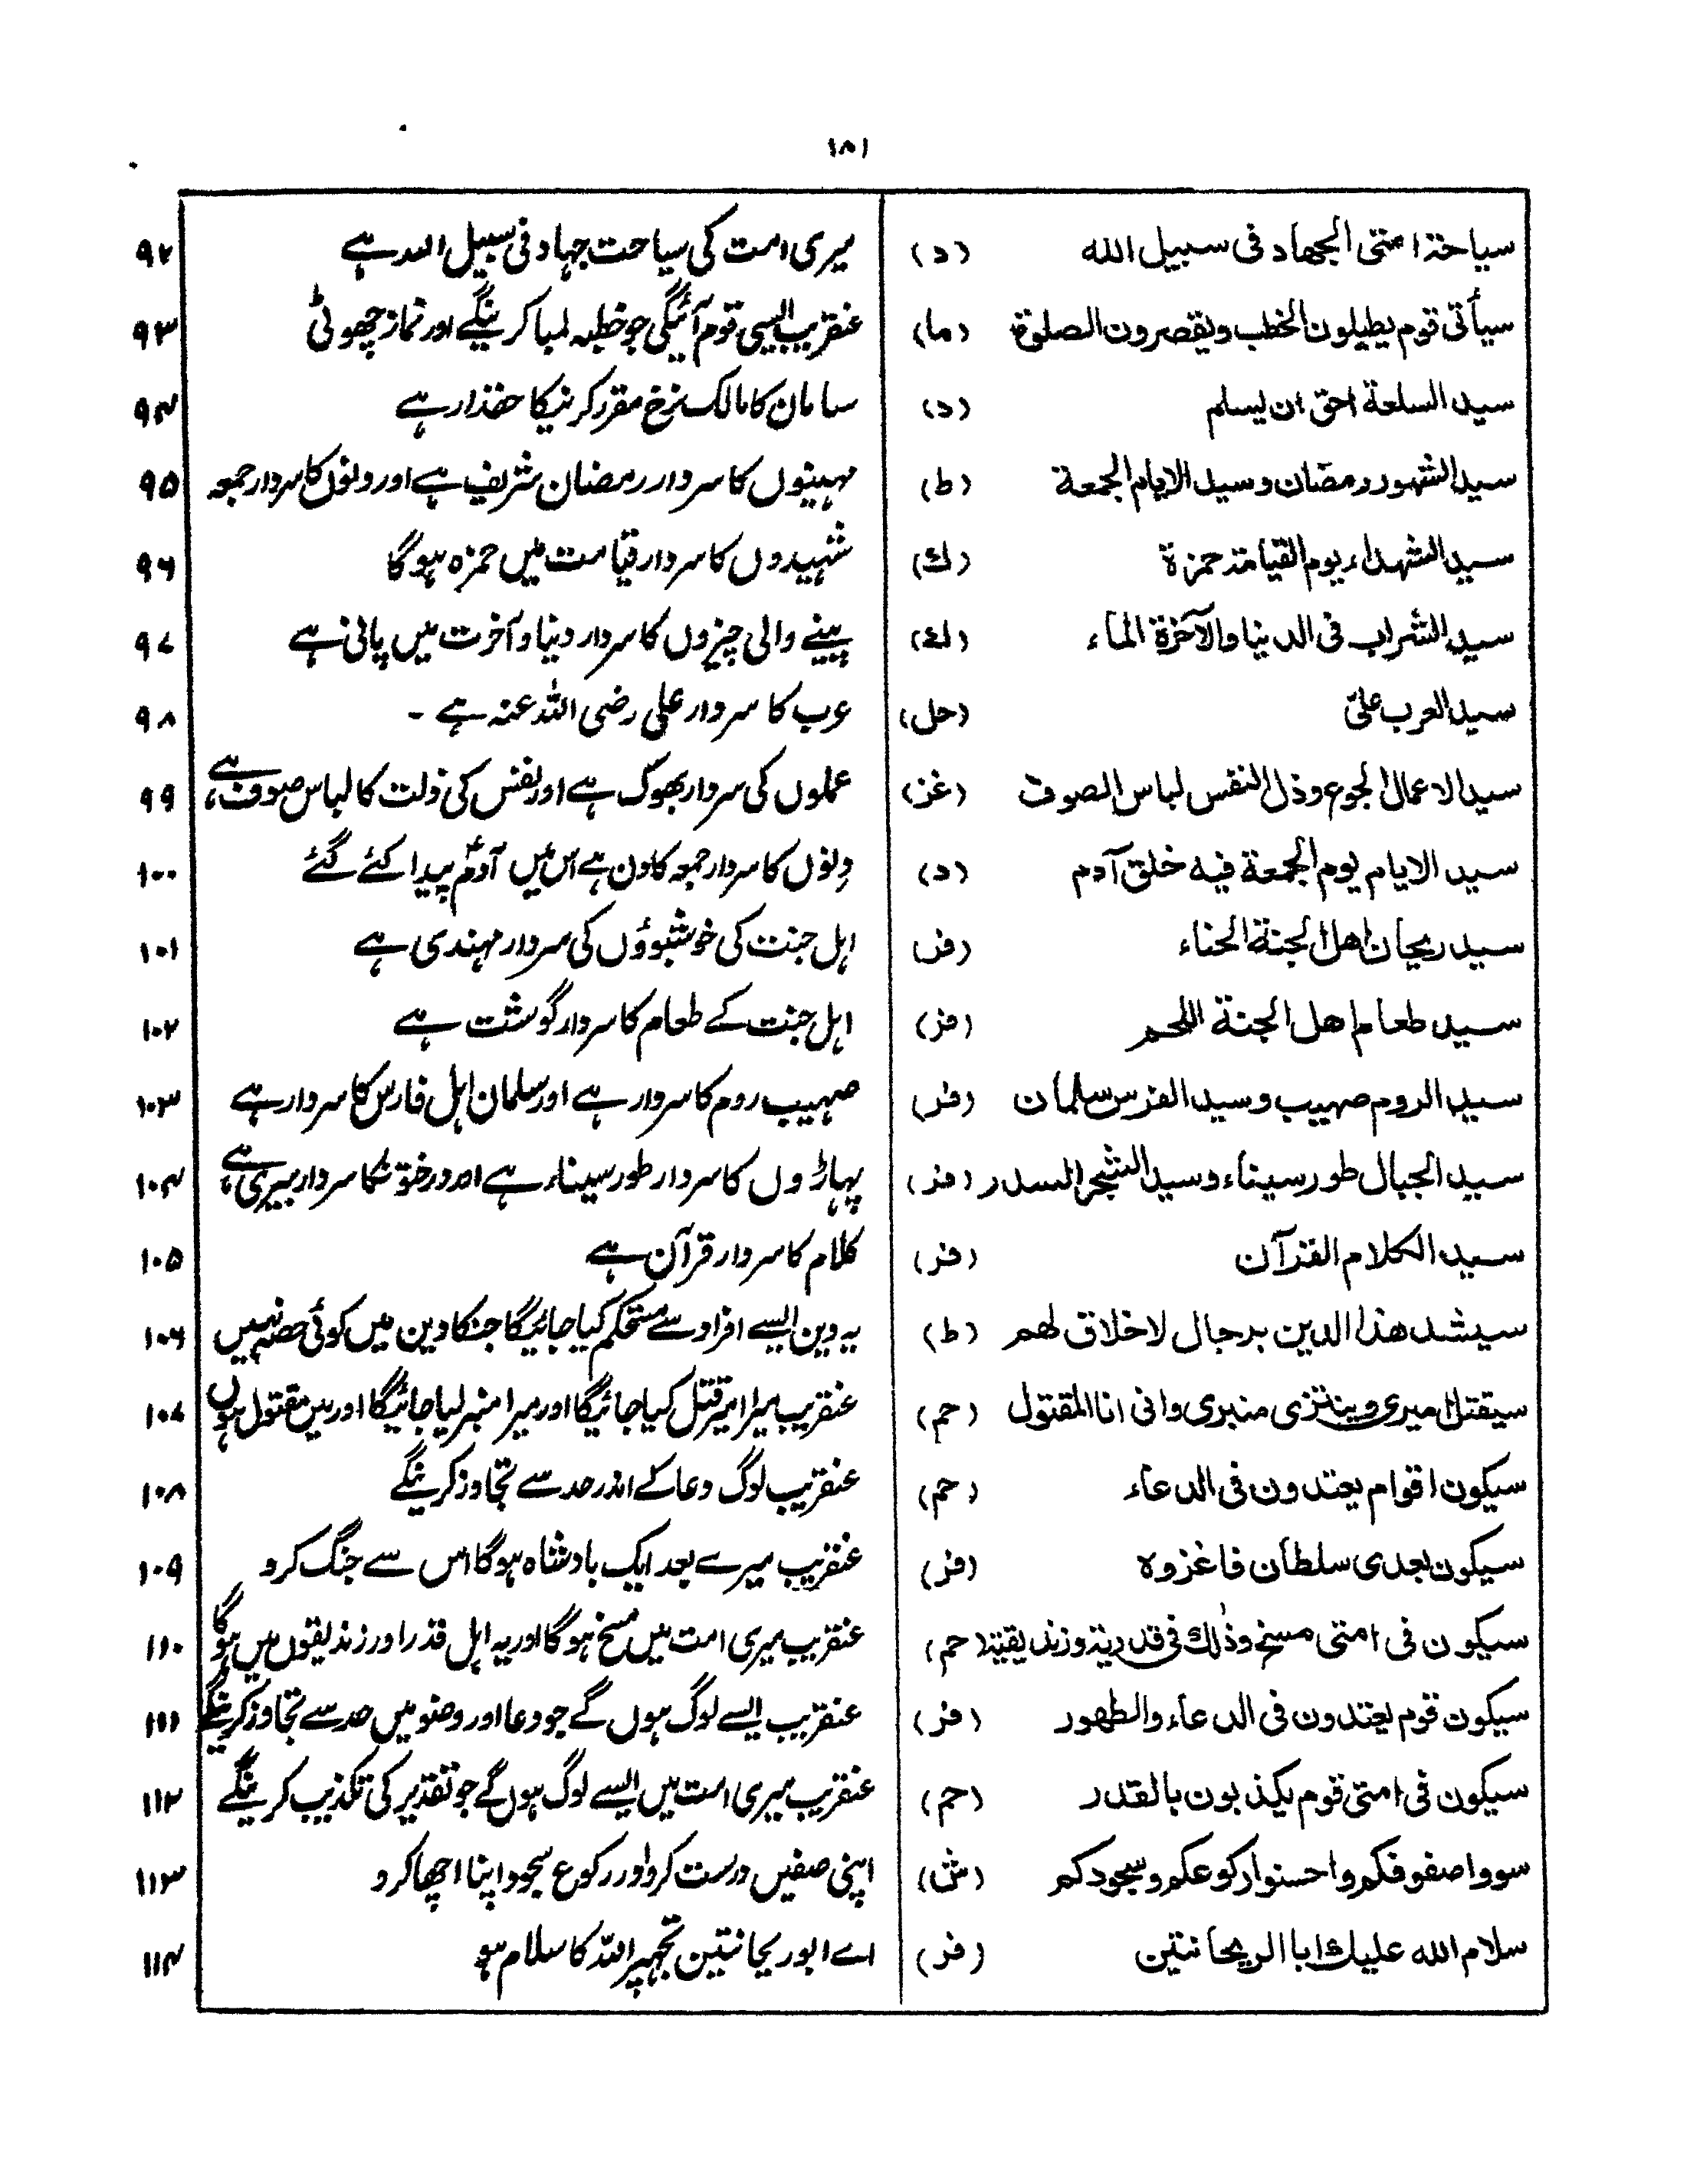 ۱۸۱
سیاحة امتی الجهاد فی سبیل الله (د) میری امت کی سیاحت جہاد فی سبیل اللہ ہے ۹۲
سیأتی قوم یطیلون الخطب ویقصرون الصلوة (ما) عنقریب ایسی قوم آئیگی جو خطبہ لمبا کرینگے اور نماز چھوٹی ۹۳
سید السلعة احق ان یسلم (د) سامان کا مالک نرخ مقرر کرنیکا حقدار ہے ۹۴
سید الشهور رمضان وسید الایام الجمعة (ط) مہینوں کا سردار رمضان شریف ہے اور دنوں کا سردار جمعہ ۹۵
سید الشهداء یوم القیامة حمزة (ك) شہیدوں کا سردار قیامت میں حمزہ ہوگا ۹۶
سید الشراب فی الدنیا والآخرة الماء (ك) پینے والی چیزوں کا سردار دنیا و آخرت میں پانی ہے ۹۷
سید العرب علیّ (حل) عرب کا سردار علی رضی اللہ عنہ ہے ۔ ۹۸
سید الاعمال الجوع وذل النفس لباس الصوف (غز) عملوں کی سردار بھوک ہے اور نفس کی ذلت کا لباس صوف ہے، ۹۹
سید الایام یوم الجمعة فیه خلق آدم (د) دنوں کا سردار جمعہ کا دن ہے اس میں آدمؑ پیدا کئے گئے ۱۰۰
سید ریحان اهل الجنة الحناء (فر) اہل جنت کی خوشبوؤں کی سردار مہندی ہے ۱۰۱
سید طعام اهل الجنة اللحم (فر) اہل جنت کے طعام کا سردار گوشت ہے ۱۰۲
سید الروم صهیب وسید الفرس سلمان (فر) صہیب روم کا سردار ہے اور سلمان اہل فارس کا سردار ہے ۱۰۳
سید الجبال طور سیناء وسید الشجر السدر (فر) پہاڑوں کا سردار طور سیناء ہے اور درختونکا سردار بیری ہے، ۱۰۴
سید الکلام القرآن (فر) کلام کا سردار قرآن ہے ۱۰۵
سیشد هذا الدین برجال لاخلاق لهم (ط) یہ دین ایسے افراد سے مستحکم کیا جائیگا جنکا دین میں کوئی حصہ نہیں ۱۰۶
سیقتل امیری وینتزی منبری وانی انا المقتول (حم) عنقریب میرا امیر قتل کیا جائیگا اور میرا منبر لیا جائیگا اور میں مقتول ہوں ۱۰۷
سیکون اقوام یعتدون فی الدعاء (حم) عنقریب لوگ دعا کے اندر حد سے تجاوز کرینگے ۱۰۸
سیکون بعدی سلطان فاغزوه (فر) عنقریب میرے بعد ایک بادشاہ ہوگا اس سے جنگ کرو ۱۰۹
سیکون فی امتی مسخ وذٰلك فی قدریة وزندیقیة (حم) عنقریب میری امت میں مسخ ہوگا اور یہ اہل قدر اور زندیقوں میں ہوگا ۱۱۰
سیکون قوم یعتدون فی الدعاء والطهور (فر) عنقریب ایسے لوگ ہوں گے جو دعا اور وضو میں حد سے تجاوز کرینگے ۱۱۱
سیکون فی امتی قوم یکذبون بالقدر (حم) عنقریب میری امت میں ایسے لوگ ہوں گے جو تقدیر کی تکذیب کرینگے ۱۱۲
سووا صفوفکم واحسنوا رکوعکم وسجودکم (ش) اپنی صفیں درست کرو اور رکوع سجود اپنا اچھا کرو ۱۱۳
سلام الله علیك ابا الریحانتین (فر) اے ابو ریحانتین تجھپر اللہ کا سلام ہو ۱۱۴